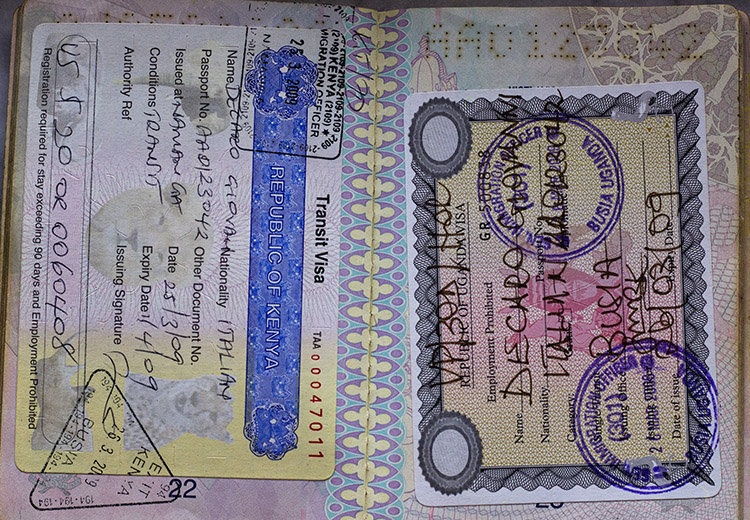 Transit Visa
TAA 00047011
REPUBLIC OF KENYA
Name DECARO GIOVANNI Nationality ITALIAN
Passport No. AA0123042 Other Document No.
Issued at NAMANGA Date 25/3/09
Conditions TRANSIT Expiry Date 1/4/09
Authority Ref Issuing Signature
US $ 20 OR 0060408
Registration required for stay exceeding 90 days and Employment Prohibited
25.3.2009
IMMIGRATION OFFICER
(2109) KENYA (2109)
BUSIA
26.3.2009
EXIT
KENYA
22
REPUBLIC OF UGANDA VISA
Employment Prohibited
Name DECARO GIOVANNI
Nationality ITALIAN
Passport No. AA0123042
Category
BUSIA
Date of Issue 26/03/09
IMMIGRATION OFFICER
(301)
BUSIA UGANDA
IMMIGRATION OFFICER
(301)
26 MAR 2009
BUSIA UGANDA